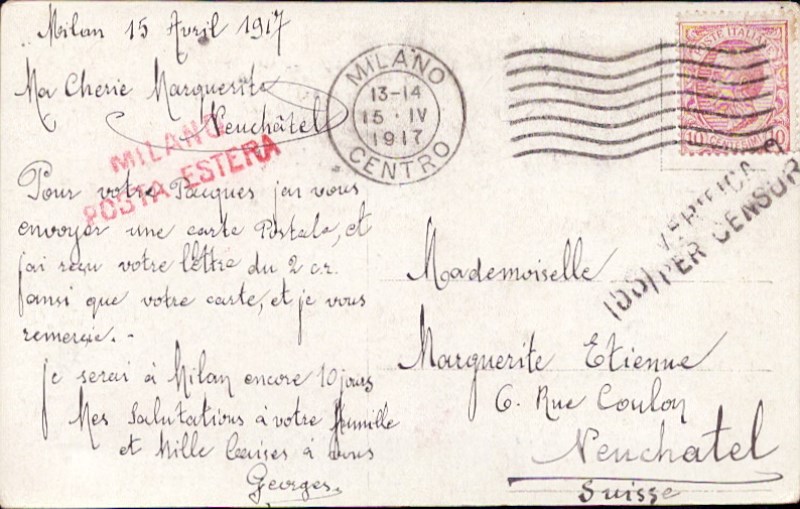 Milan 15 Avril 1917
Ma Cherie Marguerite
Neuchâtel
Pour votre Pacques j'ai vous
envoyer une carte Postale, et
j'ai reçu votre lettre du 2 cr.
ainsi que votre carte, et je vous
remercie. -
je serai à Milan encore 10 jours
Mes Salutations à votre Famille
et Mille baises à vous
Georges.
MILANO
POSTA ESTERA
MILANO
13-14
15 · IV
1917
CENTRO
POSTE ITALIANE
10 CENTESIMI 10
VERIFICA
PER CENSUR
Mademoiselle
Marguerite Etienne
6. Rue Coulon
Neuchatel
Suisse